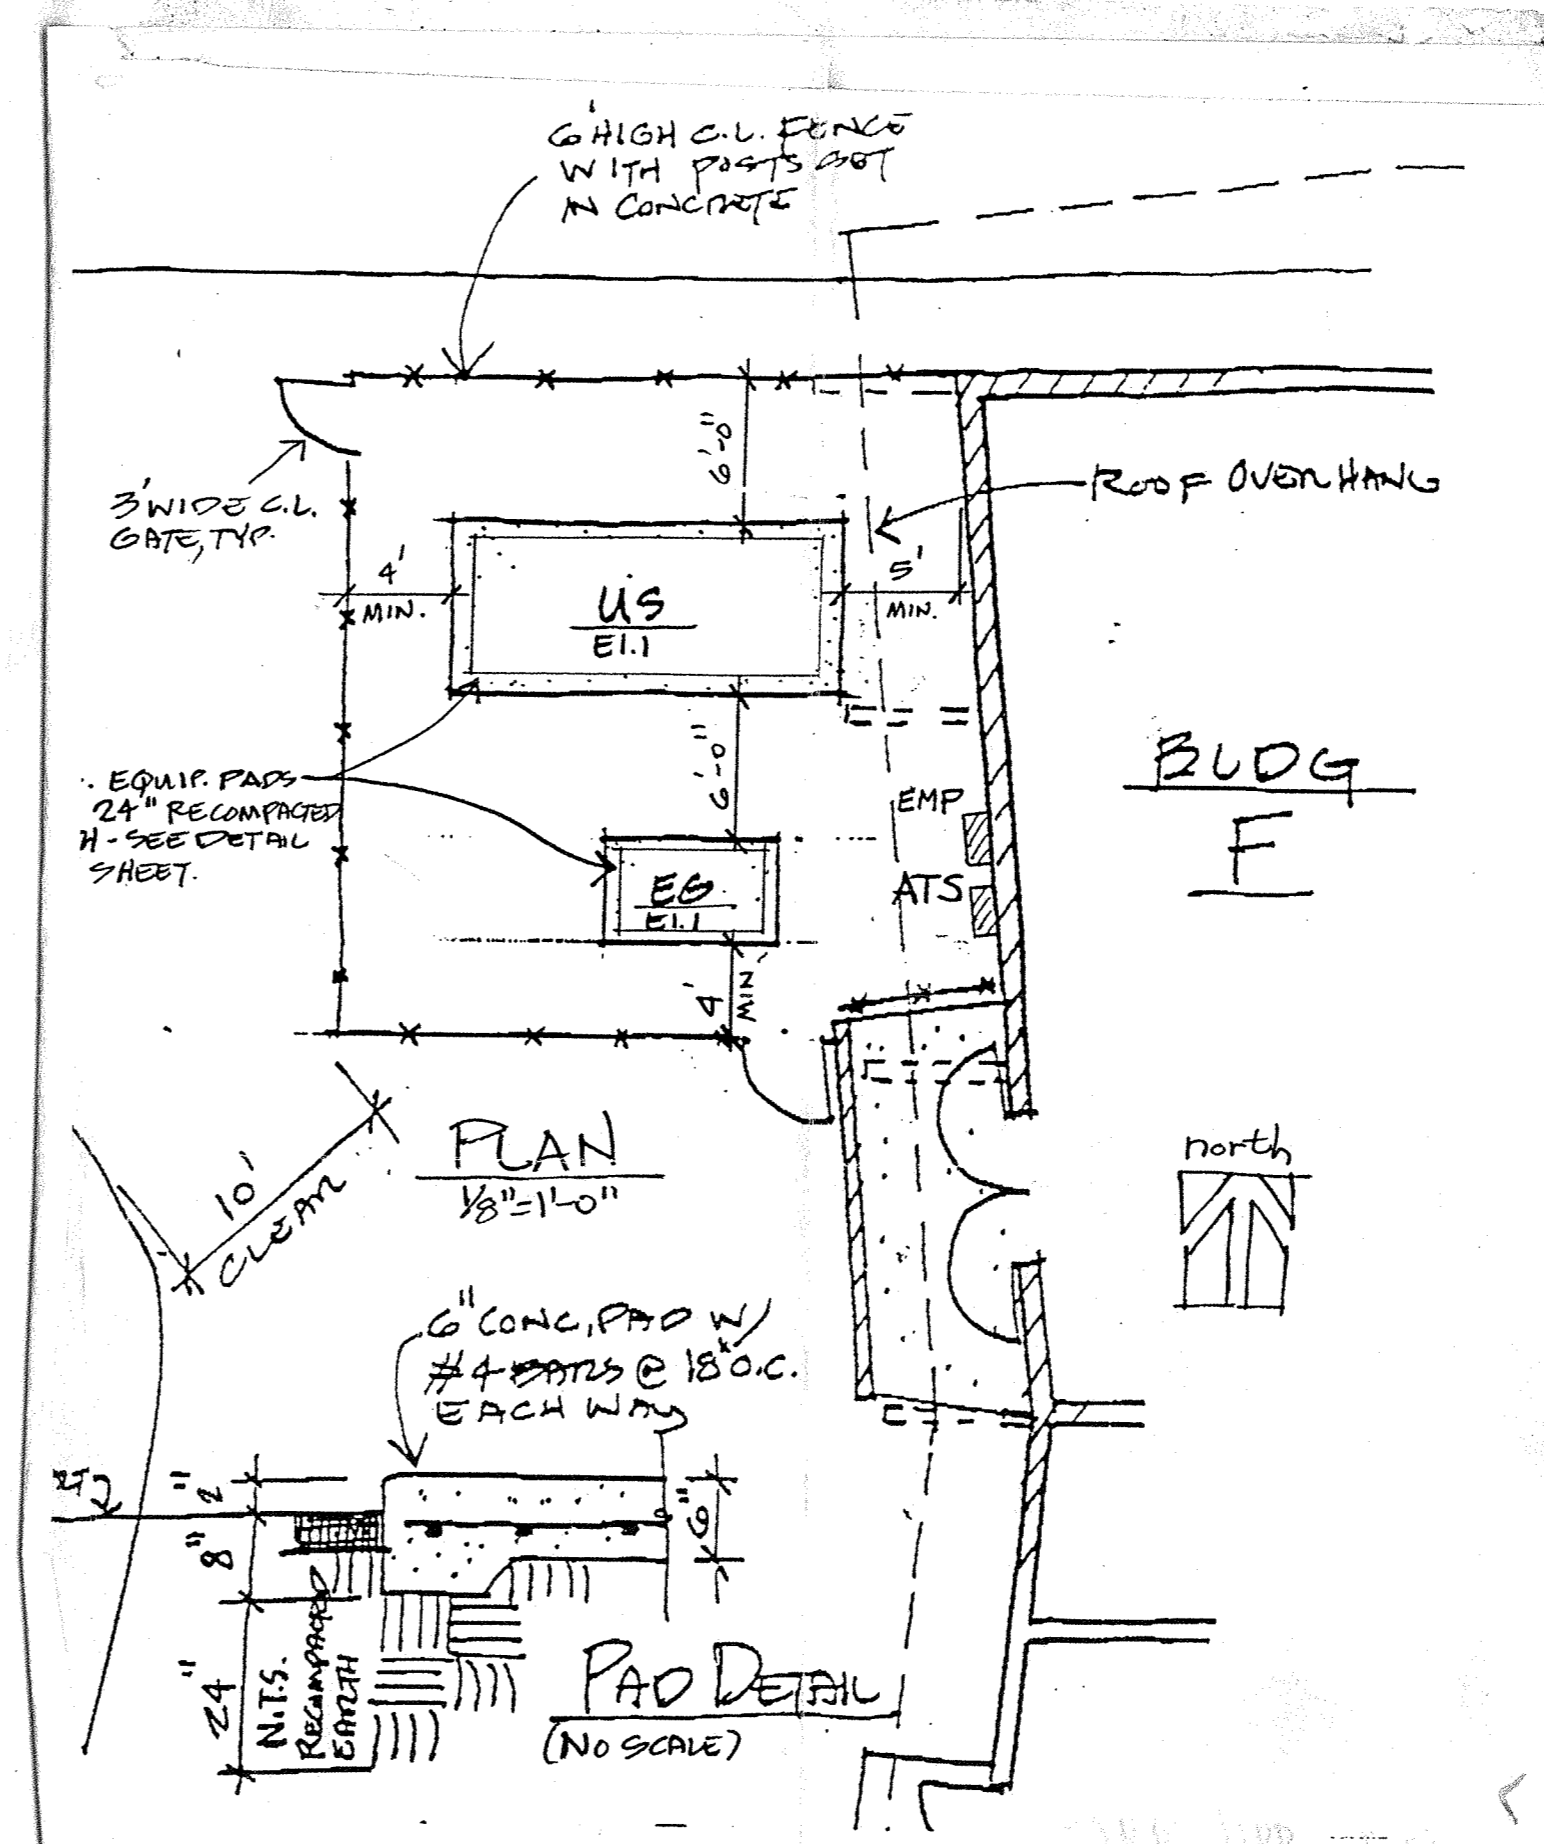 6' HIGH C.L. FENCE
WITH POSTS SET
IN CONCRETE
3' WIDE C.L.
GATE, TYP.
6'-0"
ROOF OVERHANG
4'
MIN.
US
E1.1
5'
MIN.
6'-0"
EQUIP. PADS
24" RECOMPACTED
H - SEE DETAIL
SHEET.
EMP
ATS
BLDG
F
EG
E1.1
4'
MIN
10'
CLEAR
PLAN
1/8"=1'-0"
north
6" CONC, PAD W/
#4 BARS @ 18" O.C.
EACH WAY
2"
8"
6"
24"
N.T.S.
RECOMPACTED
EARTH
PAD DETAIL
(NO SCALE)